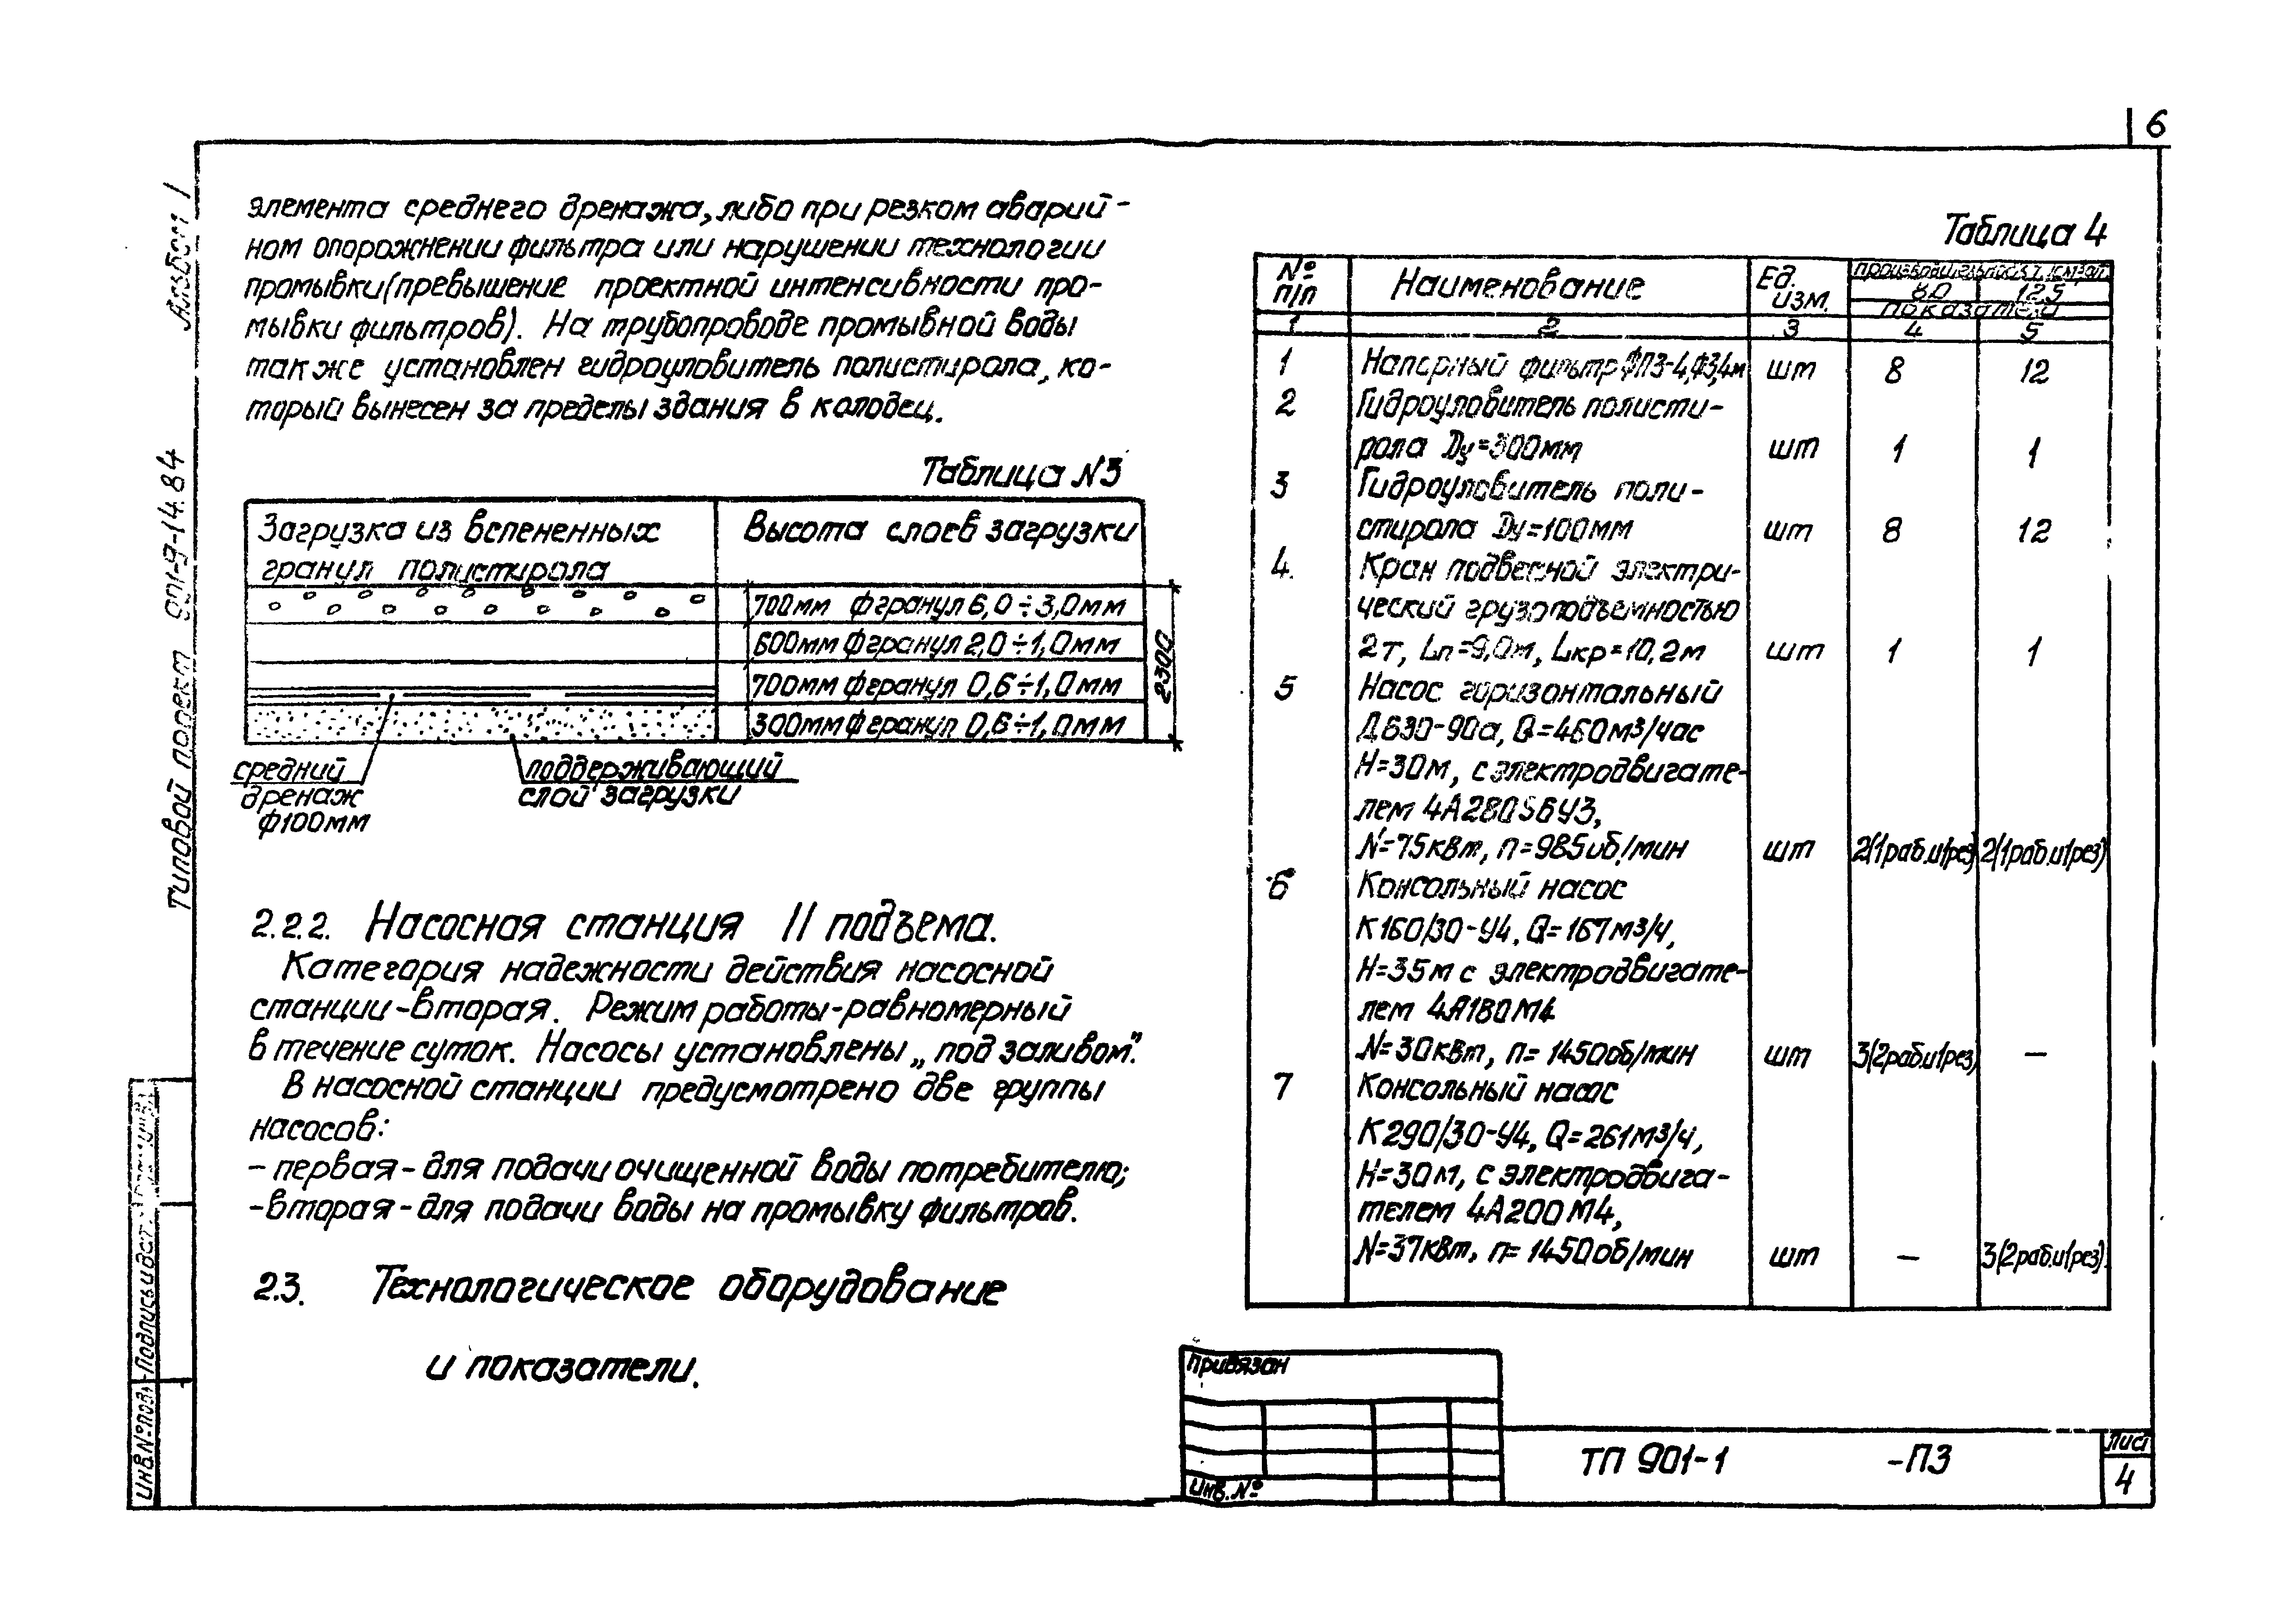 6
Альбом 1
Типовой проект 901-9-14.84
элемента среднего дренажа, либо при резком аварий-
ном опорожнении фильтра или нарушении технологии
промывки (превышение проектной интенсивности про-
мывки фильтров). На трубопроводе промывной воды
также установлен гидроуловитель полистирола, ко-
торый вынесен за пределы здания в колодец.
Таблица N3
Загрузка из вспененных
гранул полистирола
Высота слоев загрузки
700мм ф гранул 6,0÷3,0мм
600мм ф гранул 2,0÷1,0мм
700мм ф гранул 0,6÷1,0мм
300мм ф гранул 0,6÷1,0мм
2300
средний
дренаж
ф100мм
поддерживающий
слой загрузки
2.2.2. Насосная станция II подъема.
Категория надежности действия насосной
станции-вторая. Режим работы-равномерный
в течение суток. Насосы установлены „под заливом".
В насосной станции предусмотрено две группы
насосов:
- первая - для подачи очищенной воды потребителю;
- вторая - для подачи воды на промывку фильтров.
2.3. Технологическое оборудование
и показатели.
Таблица 4
№ п/п Наименование Ед. изм.
8,0 12,5
показатели
1 2 3 4 5
1 Напорный фильтр ФПЗ-4, Ф3,4м шт 8 12
2 Гидроуловитель полисти-
рола Dу=300мм шт 1 1
3 Гидроуловитель поли-
стирола Dу=100мм шт 8 12
4. Кран подвесной электри-
ческий грузоподъемностью
2т, Lп=9,0м, Lкр=10,2м шт 1 1
5 Насос горизонтальный
Д630-90а, Q=460м³/час
H=30м, с электродвигате-
лем 4А280S6У3,
N=75квт, n=985об/мин шт 2(1раб.и1рез) 2(1раб.и1рез)
6 Консольный насос
К160/30-У4, Q=167м³/ч,
H=35м с электродвигате-
лем 4А180М4
N=30квт, n=1450об/мин шт 3(2раб.и1рез) —
7 Консольный насос
К290/30-У4, Q=261м³/ч,
H=30м, с электродвига-
телем 4А200М4,
N=37квт, n=1450об/мин шт — 3(2раб.и1рез).
Привязан
Инв. №
ТП 901-1 -ПЗ
Лист
4
Инв.№ подл.
Подпись и дата